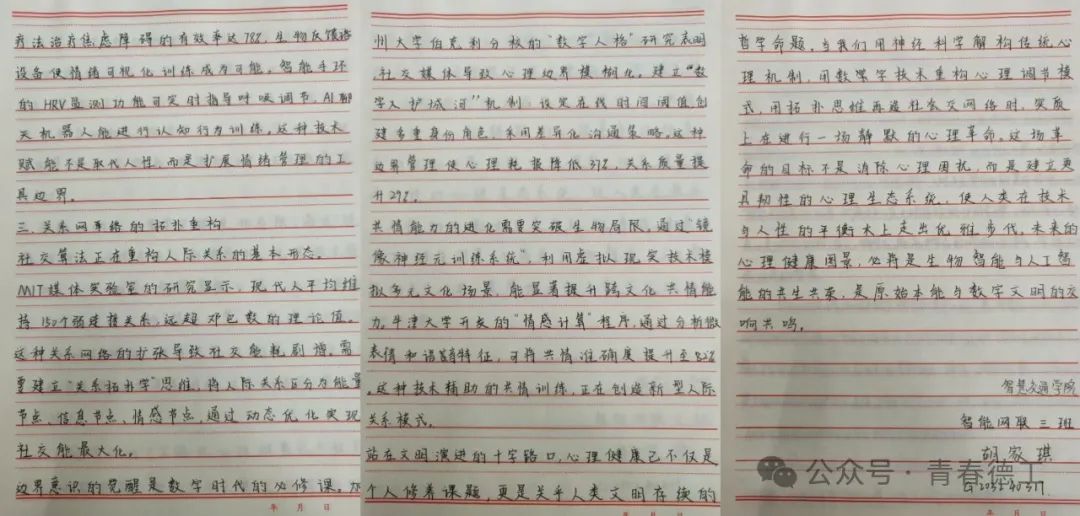 疗法治疗焦虑障碍的有效率达78%，生物反馈
设备使情绪可视化训练成为可能。智能手环
的HRV监测功能可实时指导呼吸调节，AI聊
天机器人能进行认知行为训练。这种技术
赋能不是取代人性，而是扩展情绪管理的工
具边界。
三、关系网络的拓扑重构
社交算法正在重构人际关系的基本形态。
MIT媒体实验室的研究显示，现代人平均维
持150个弱连接关系，远超邓巴数的理论值。
这种关系网络的扩张导致社交能耗剧增。需
要建立“关系拓扑学”思维，将人际关系区分为能量
节点、信息节点、情感节点，通过动态优化实现
社交能最大化。
边界意识的觉醒是数字时代的必修课。加
年 月 日
州大学伯克利分校的“数字人格”研究表明
，社交媒体导致心理边界模糊化。建立“数
字护城河”机制：设定在线时间阈值，创
建多重身份角色，采用差异化沟通策略。这种
边界管理使心理耗损降低37%，关系质量提
升29%。
共情能力的进化需要突破生物局限。通过“镜
像神经元训练系统”，利用虚拟现实技术模
拟多元文化场景，能显著提升跨文化共情能
力。牛津大学开发的“情感计算”程序，通过分析微
表情和语音特征，可将共情准确度提升至82%
。这种技术辅助的共情训练，正在创造新型人际
关系模式。
站在文明演进的十字路口，心理健康已不仅是
个人修养课题，更是关乎人类文明存续的
年 月 日
哲学命题。当我们用神经科学解构传统心
理机制，用数字技术重构心理调节模
式，用拓扑思维再造社会交网络时，实质
上在进行一场静默的心理革命。这场革
命的目标不是消除心理困扰，而是建立更
具韧性的心理生态系统，使人类在技术
与人性的平衡木上走出优雅步伐。未来的
心理健康图景，必将是生物智能与人工智
能的共生共荣，是原始本能与数字文明的交
响共鸣。
智慧交通学院
智能网联三班
胡家琪
公众号·青春德工
年 月 日